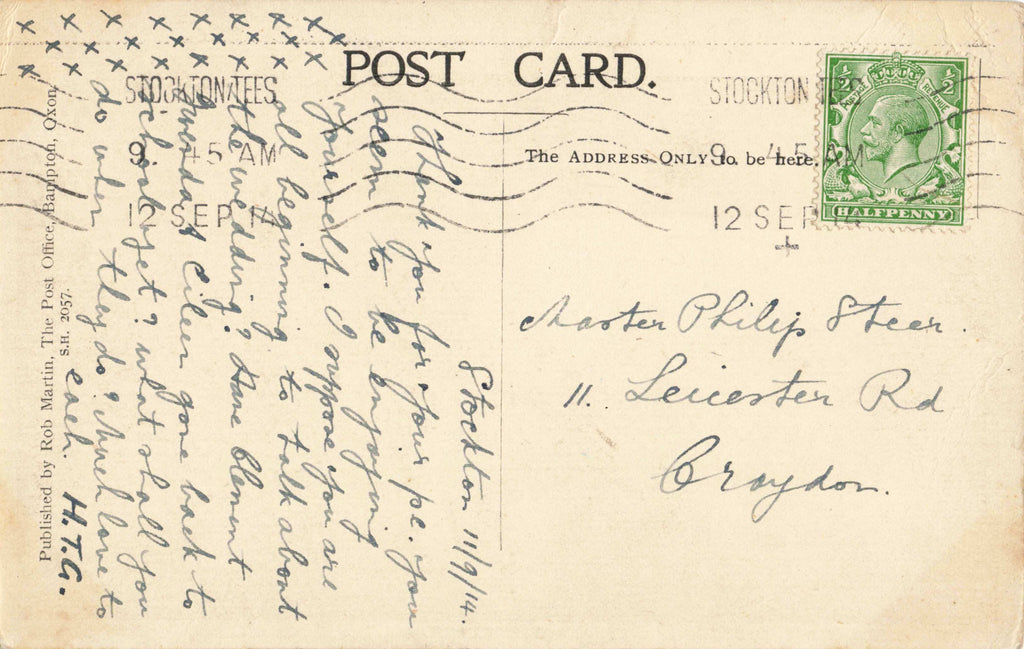 POST CARD.
The ADDRESS ONLY to be here.
STOCKTON TEES
9. 45 AM
12 SEP 14
STOCKTON
9. 45 AM
12 SEP 14
½ ½
POSTAGE REVENUE
HALFPENNY
Stockton 11/9/14.
Thank you for your pc. you
seem to be enjoying
yourself. I suppose you are
all beginning to talk about
the wedding? Have Clement
Gwenda & Eileen gone back to
school yet? What shall you
do when they do? Much love to
each. H.T.G.
x x x x x x x x
x x x x x x x
x x x x x x x
Master Philip Steer.
11. Leicester Rd
Croydon.
Published by Rob Martin, The Post Office, Bampton, Oxon.
S.H. 2057.